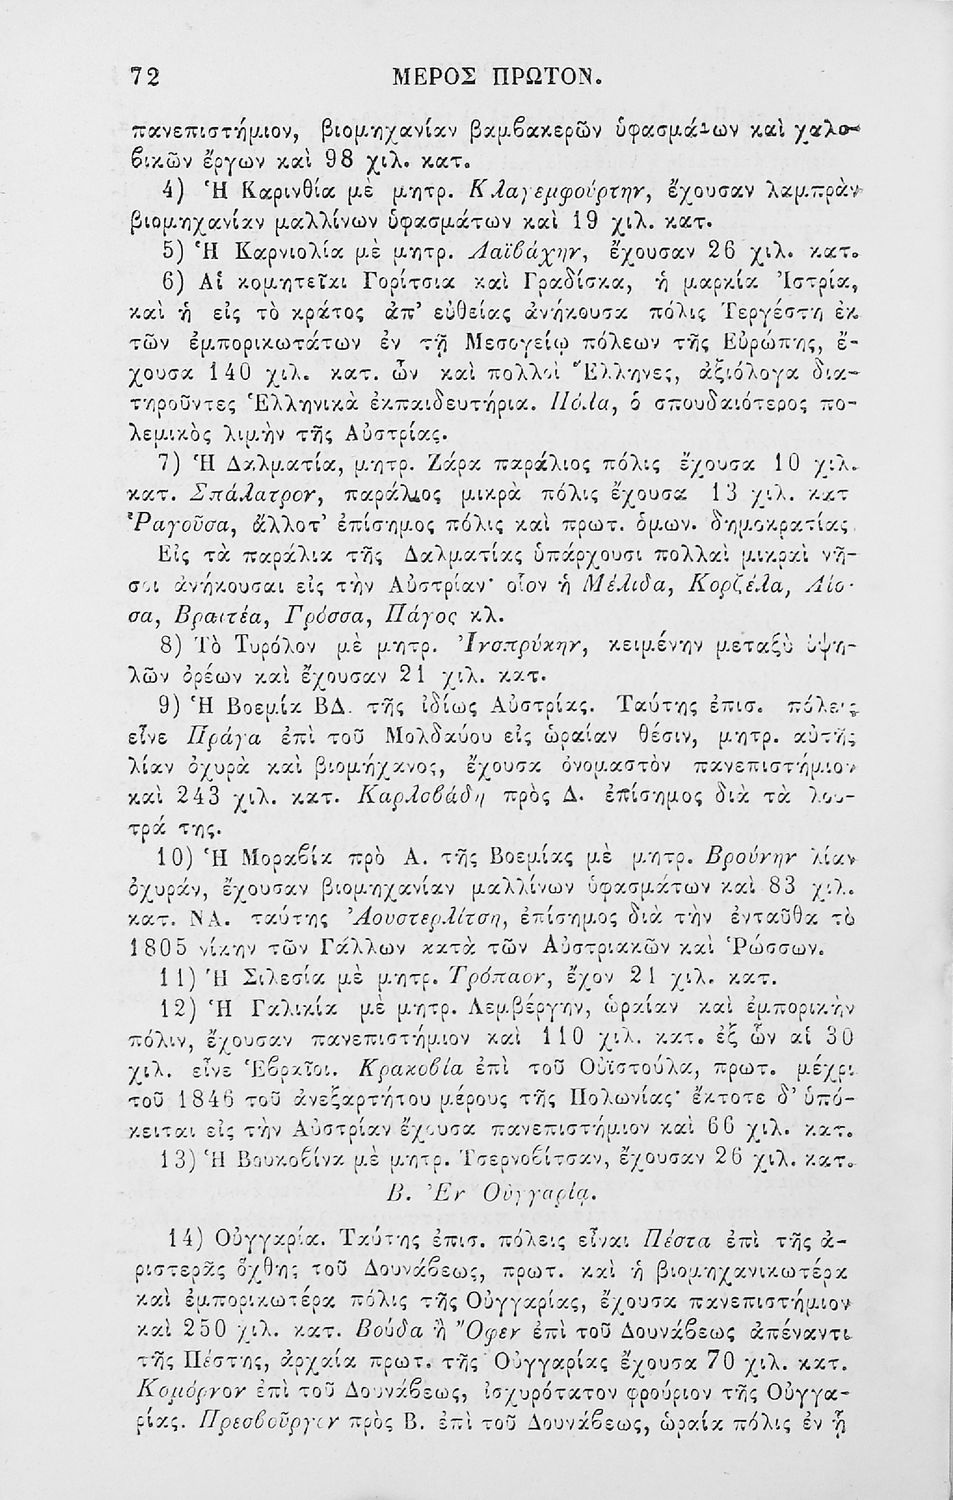 72 ΜΕΡΟΣ ΠΡΩΤΟΝ.
πανεπιστήμιον, βιομηχανίαν βαμβακερῶν ὑφασμάτων καὶ χαλυ-
βικῶν ἔργων καὶ 98 χιλ. κατ.
4) Ἡ Καρινθία μὲ μητρ. Κλαγεμφούρτην, ἔχουσαν λαμπρὰν
βιομηχανίαν μαλλίνων ὑφασμάτων καὶ 19 χιλ. κατ.
5) Ἡ Καρνιολία μὲ μητρ. Λαϊβάχην, ἔχουσαν 26 χιλ. κατ.
6) Αἱ κομητεῖαι Γορίτσια καὶ Γραδίσκα, ἡ μαρκία Ἰστρία,
καὶ ἡ εἰς τὸ κράτος ἀπ’ εὐθείας ἀνήκουσα πόλις Τεργέστη ἐκ
τῶν ἐμπορικωτάτων ἐν τῇ Μεσογείῳ πόλεων τῆς Εὐρώπης, ἔ-
χουσα 140 χιλ. κατ. ὧν καὶ πολλοὶ Ἕλληνες, ἀξιόλογα δια-
τηροῦντες Ἑλληνικὰ ἐκπαιδευτήρια. Πόλα, ὁ σπουδαιότερος πο-
λεμικὸς λιμὴν τῆς Αὐστρίας.
7) Ἡ Δαλματία, μητρ. Ζάρα παράλιος πόλις ἔχουσα 10 χιλ.
κατ. Σπάλατρον, παράλιος μικρὰ πόλις ἔχουσα 13 χιλ. κατ
Ῥαγοῦσα, ἄλλοτ’ ἐπίσημος πόλις καὶ πρωτ. ὁμων. δημοκρατίας
Εἰς τὰ παράλια τῆς Δαλματίας ὑπάρχουσι πολλαὶ μικραὶ νῆ-
σοι ἀνήκουσαι εἰς τὴν Αὐστρίαν· οἷον ἡ Μέλιδα, Κορζέλα, Λίσ-
σα, Βρατσέα, Γρόσσα, Πάγος κλ.
8) Τὸ Τυρόλον μὲ μητρ. Ἰνσπρύκην, κειμένην μεταξὺ ὑψη-
λῶν ὀρέων καὶ ἔχουσαν 21 χιλ. κατ.
9) Ἡ Βοεμία ΒΔ. τῆς ἰδίως Αὐστρίας. Ταύτης ἐπισ. πόλεις
εἶνε Πράγα ἐπὶ τοῦ Μολδαύου εἰς ὡραίαν θέσιν, μητρ. αὐτῆς
λίαν ὀχυρὰ καὶ βιομήχανος, ἔχουσα ὀνομαστὸν πανεπιστήμιον
καὶ 243 χιλ. κατ. Καρλσβάδη πρὸς Δ. ἐπίσημος διὰ τὰ λου-
τρά της.
10) Ἡ Μοραβία πρὸ Α. τῆς Βοεμίας μὲ μητρ. Βρούνην λίαν
ὀχυράν, ἔχουσαν βιομηχανίαν μαλλίνων ὑφασμάτων καὶ 83 χιλ.
κατ. ΝΑ. ταύτης Ἀουστερλίτση, ἐπίσημος διὰ τὴν ἐνταῦθα τὸ
1805 νίκην τῶν Γάλλων κατὰ τῶν Αὐστριακῶν καὶ Ῥώσσων.
11) Ἡ Σιλεσία μὲ μητρ. Τρόπαον, ἔχον 21 χιλ. κατ.
12) Ἡ Γαλικία μὲ μητρ. Λεμβέργην, ὡραίαν καὶ ἐμπορικὴν
πόλιν, ἔχουσαν πανεπιστήμιον καὶ 110 χιλ. κατ. ἐξ ὧν αἱ 30
χιλ. εἶνε Ἑβραῖοι. Κρακοβία ἐπὶ τοῦ Οὐϊστούλα, πρωτ. μέχρι
τοῦ 1846 τοῦ ἀνεξαρτήτου μέρους τῆς Πολωνίας· ἔκτοτε δ’ ὑπό-
κειται εἰς τὴν Αὐστρίαν ἔχουσα πανεπιστήμιον καὶ 66 χιλ. κατ.
13) Ἡ Βουκοβίνα μὲ μητρ. Τσερνοβίτσαν, ἔχουσαν 26 χιλ. κατ.
Β. Ἐν Οὑγγαρίᾳ.
14) Οὑγγαρία. Ταύτης ἐπισ. πόλεις εἶναι Πέστα ἐπὶ τῆς ἀ-
ριστερᾶς ὄχθης τοῦ Δουνάβεως, πρωτ. καὶ ἡ βιομηχανικωτέρα
καὶ ἐμπορικωτέρα πόλις τῆς Οὑγγαρίας, ἔχουσα πανεπιστήμιον
καὶ 250 χιλ. κατ. Βούδα ἢ Ὄφεν ἐπὶ τοῦ Δουνάβεως ἀπέναντι
τῆς Πέστης, ἀρχαία πρωτ. τῆς Οὑγγαρίας ἔχουσα 70 χιλ. κατ.
Κομόρνον ἐπὶ τοῦ Δουνάβεως, ἰσχυρότατον φρούριον τῆς Οὑγγα-
ρίας. Πρεσβοῦργον πρὸς Β. ἐπὶ τοῦ Δουνάβεως, ὡραία πόλις ἐν ᾗ